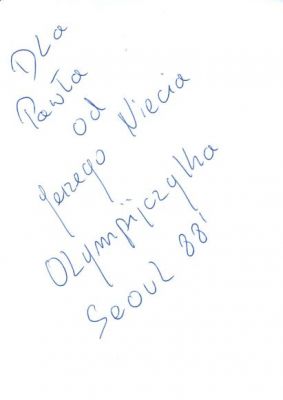 Dla
Pawła
od
Jerzego Niecia
Olympijczyka
Seoul 88'